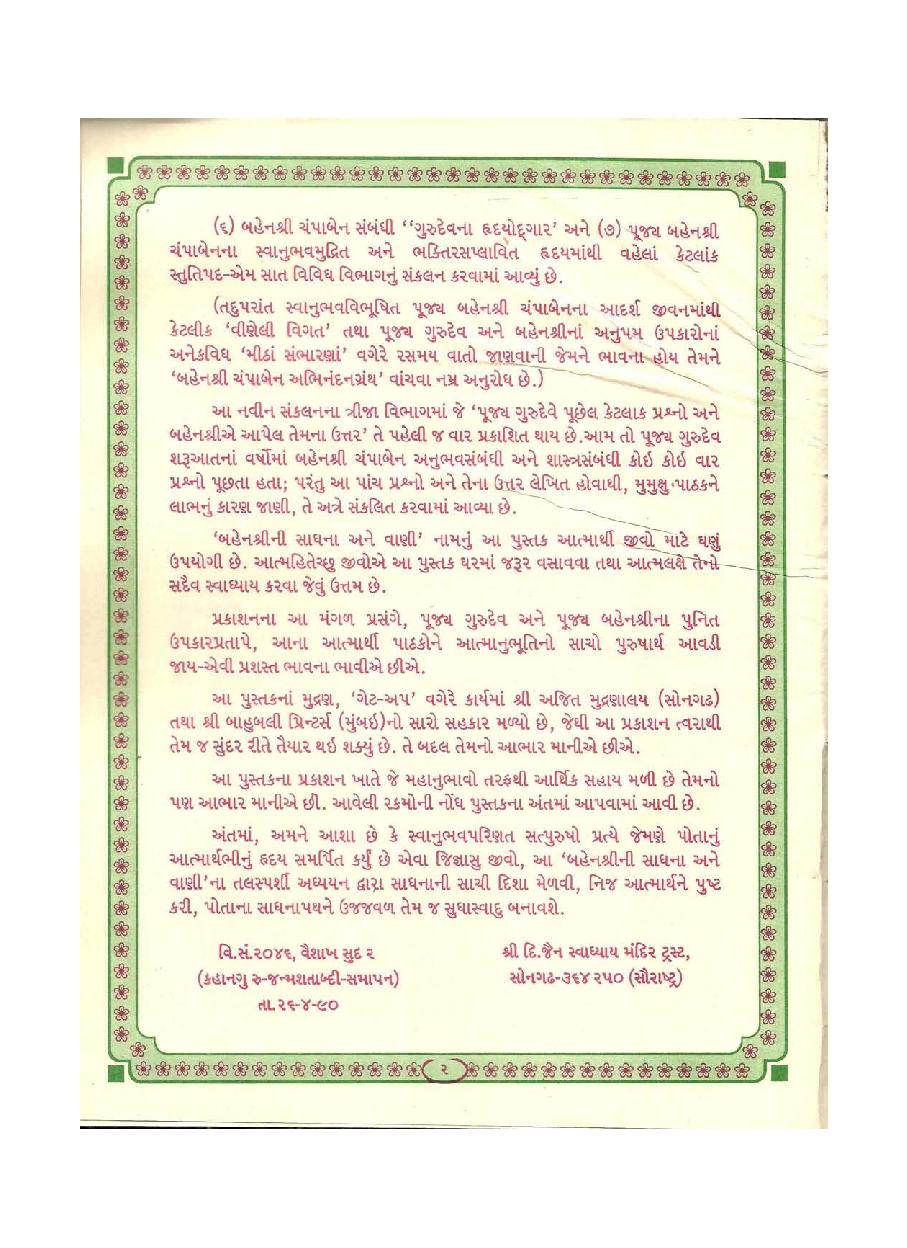 (૬) બહેનશ્રી ચંપાબેન સંબંધી ‘‘ગુરુદેવના હૃદયોદ્ગાર’ અને (૭) પૂજ્ય બહેનશ્રી
ચંપાબેનના સ્વાનુભવમુદ્રિત અને ભક્તિરસપ્લાવિત હૃદયમાંથી વહેલાં કેટલાંક
સ્તુતિપદ-એમ સાત વિવિધ વિભાગનું સંકલન કરવામાં આવ્યું છે.
(તદુપરાંત સ્વાનુભવવિભૂષિત પૂજ્ય બહેનશ્રી ચંપાબેનના આદર્શ જીવનમાંથી
કેટલીક ‘વીણેલી વિગત’ તથા પૂજ્ય ગુરુદેવ અને બહેનશ્રીનાં અનુપમ ઉપકારોનાં
અનેકવિધ ‘મીઠાં સંભારણાં’ વગેરે રસમય વાતો જાણવાની જેમને ભાવના હોય તેમને
‘બહેનશ્રી ચંપાબેન અભિનંદનગ્રંથ’ વાંચવા નમ્ર અનુરોધ છે.)
આ નવીન સંકલનના ત્રીજા વિભાગમાં જે ‘પૂજ્ય ગુરુદેવે પૂછેલ કેટલાક પ્રશ્નો અને
બહેનશ્રીએ આપેલ તેમના ઉત્તર’ તે પહેલી જ વાર પ્રકાશિત થાય છે.આમ તો પૂજ્ય ગુરુદેવ
શરૂઆતનાં વર્ષોમાં બહેનશ્રી ચંપાબેન અનુભવસંબંધી અને શાસ્ત્રસંબંધી કોઇ કોઇ વાર
પ્રશ્નો પૂછતા હતા; પરંતુ આ પાંચ પ્રશ્નો અને તેના ઉત્તર લેખિત હોવાથી, મુમુક્ષુ પાઠકને
લાભનું કારણ જાણી, તે અત્રે સંકલિત કરવામાં આવ્યા છે.
‘બહેનશ્રીની સાધના અને વાણી’ નામનું આ પુસ્તક આત્માર્થી જીવો માટે ઘણું
ઉપયોગી છે. આત્મહિતેચ્છુ જીવોએ આ પુસ્તક ઘરમાં જરૂર વસાવવા તથા આત્મલક્ષે તેનો
સદૈવ સ્વાધ્યાય કરવા જેવું ઉત્તમ છે.
પ્રકાશનના આ મંગળ પ્રસંગે, પૂજ્ય ગુરુદેવ અને પૂજ્ય બહેનશ્રીના પુનિત
ઉપકારપ્રતાપે, આના આત્માર્થી પાઠકોને આત્માનુભૂતિનો સાચો પુરુષાર્થ આવડી
જાય-એવી પ્રશસ્ત ભાવના ભાવીએ છીએ.
આ પુસ્તકનાં મુદ્રણ, ‘ગેટ-અપ’ વગેરે કાર્યમાં શ્રી અજિત મુદ્રણાલય (સોનગઢ)
તથા શ્રી બાહુબલી પ્રિન્ટર્સ (મુંબઇ)નો સારો સહકાર મળ્યો છે, જેથી આ પ્રકાશન ત્વરાથી
તેમ જ સુંદર રીતે તૈયાર થઇ શક્યું છે. તે બદલ તેમનો આભાર માનીએ છીએ.
આ પુસ્તકના પ્રકાશન ખાતે જે મહાનુભાવો તરફથી આર્થિક સહાય મળી છે તેમનો
પણ આભાર માનીએ છી. આવેલી રકમોની નોંધ પુસ્તકના અંતમાં આપવામાં આવી છે.
અંતમાં, અમને આશા છે કે સ્વાનુભવપરિણત સત્પુરુષો પ્રત્યે જેમણે પોતાનું
આત્માર્થભીનું હૃદય સમર્પિત કર્યું છે એવા જિજ્ઞાસુ જીવો, આ ‘બહેનશ્રીની સાધના અને
વાણી’ના તલસ્પર્શી અધ્યયન દ્વારા સાધનાની સાચી દિશા મેળવી, નિજ આત્માર્થને પુષ્ટ
કરી, પોતાના સાધનાપથને ઉજજવળ તેમ જ સુધાસ્વાદુ બનાવશે.
વિ.સં.૨૦૪૬, વૈશાખ સુદ ૨
(કહાનગુ રુ-જન્મશતાબ્દી-સમાપન)
તા.૨૬-૪-૯૦
શ્રી દિ.જૈન સ્વાધ્યાય મંદિર ટ્રસ્ટ,
સોનગઢ-૩૬૪ ૨૫૦ (સૌરાષ્ટ્ર)
૨